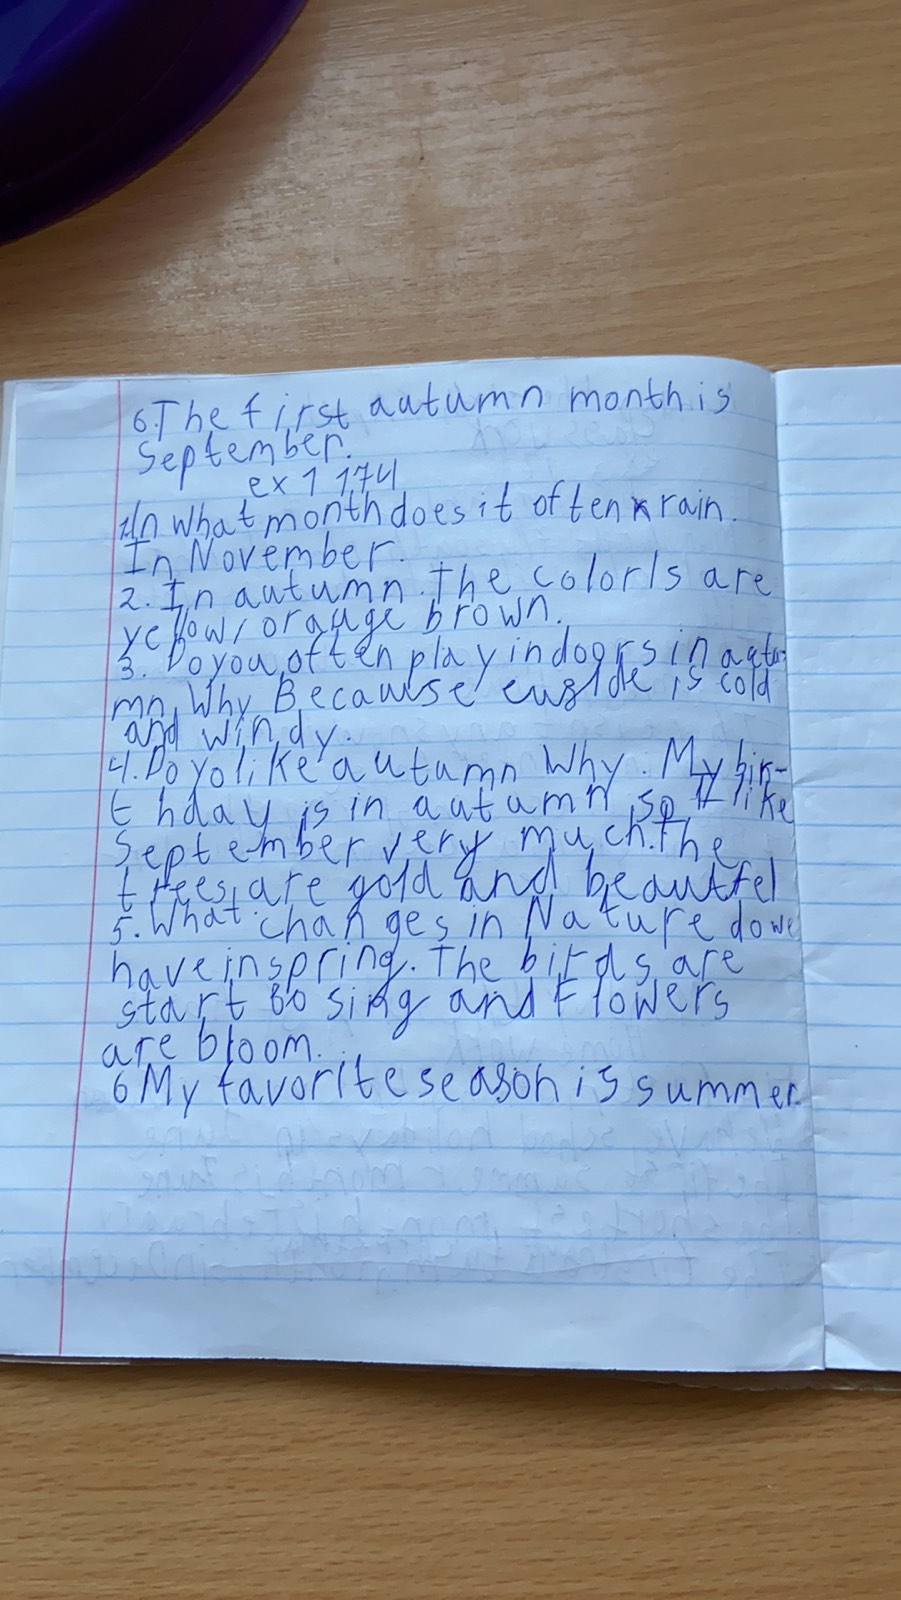 6.The first autumn month is
September.
ex 1 174
1.In what month does it often rain.
In November.
2. In autumn. The colorIs are
yellow, orauge brown.
3. Do you often play indoors in autu-
mn, Why Because is cold
and windy.
4. Do yo like autumn Why. My bir-
thday is in autumn, so I like
September very much.The
trees, are gold and beautfel
5. What changes in Nature do we
have in spring. The birds are
start to sing and Flowers
are bloom.
6 My favorite season is summer.